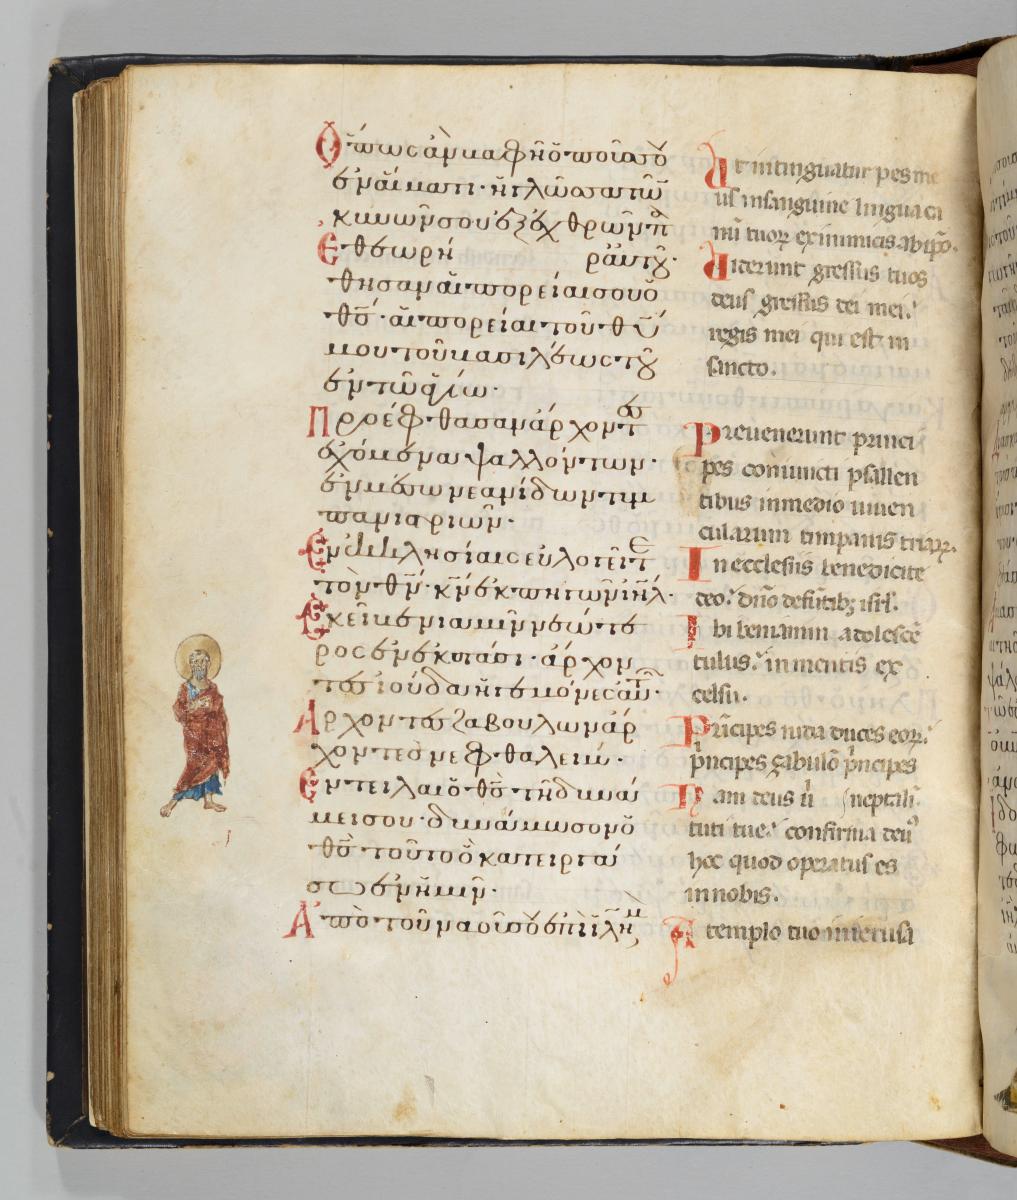 Ὅπως ἂν βαφῇ ὁ ποῦς σȣ
ἐν αἵματι· ἡ γλῶσσα τῶν
κυνῶν σου ἐξ ἐχθρῶν π
Ἐθεωρή ραν τȣ
θησαν αἱ πορεῖαι σου ὁ
θς· αἱ πορεῖαι τοῦ θυ
μου τοῦ βασιλέως τȣ
ἐν τῶ ἁγίω·
Προέφθασαν ἄρχοντ
ἐχόμεναι ψαλλόντων·
ἐν μέσω νεανίδων τυμ
πανιστριῶν·
Ἐν ἐκκλησίαις εὐλογεῖτε
τὸν θν· κν ἐκ πηγῶν ιηλ·
Ἐκεῖ βενιαμὶν νεώτε
ρος ἐν ἐκστάσει· ἄρχον
τες ἰούδα ἡγεμόνες αὐτῶν·
Ἄρχοντες ζαβουλὼν ἄρ
χοντες νεφθαλείμ·
Ἔντειλαι ὁ θς τῇ δυνά
μει σου· δυνάμωσον ὁ
θς τοῦτο ὃ κατειργά
σω ἐν ἡμῖν·
Ἀπὸ τοῦ ναοῦ σȣ ἐπὶ ιλημ
Ut intinguatur pes me
us in sanguine lingua ca
nũ tuoꝝ ex inimicis ab ip̃o.
Viderunt gressus tuos
deus gressus dei mei.
regis mei qui est in
sancto.
Prevenerunt princi
pes coniuncti psallen
tibus in medio iuven
cularum timpanistriaꝝ.
In ecclesiis benedicite
deo. dño de fontibꝫ isrl.
Ibi beniamin adolescẽ
tulus. in mentis ex
celsu.
Principes iuda duces eoꝝ.
principes zabulõ principes
neptali.
Manda deus vir
tuti tue. confirma deus
hoc quod operatus es
in nobis.
A templo tuo in ierusa